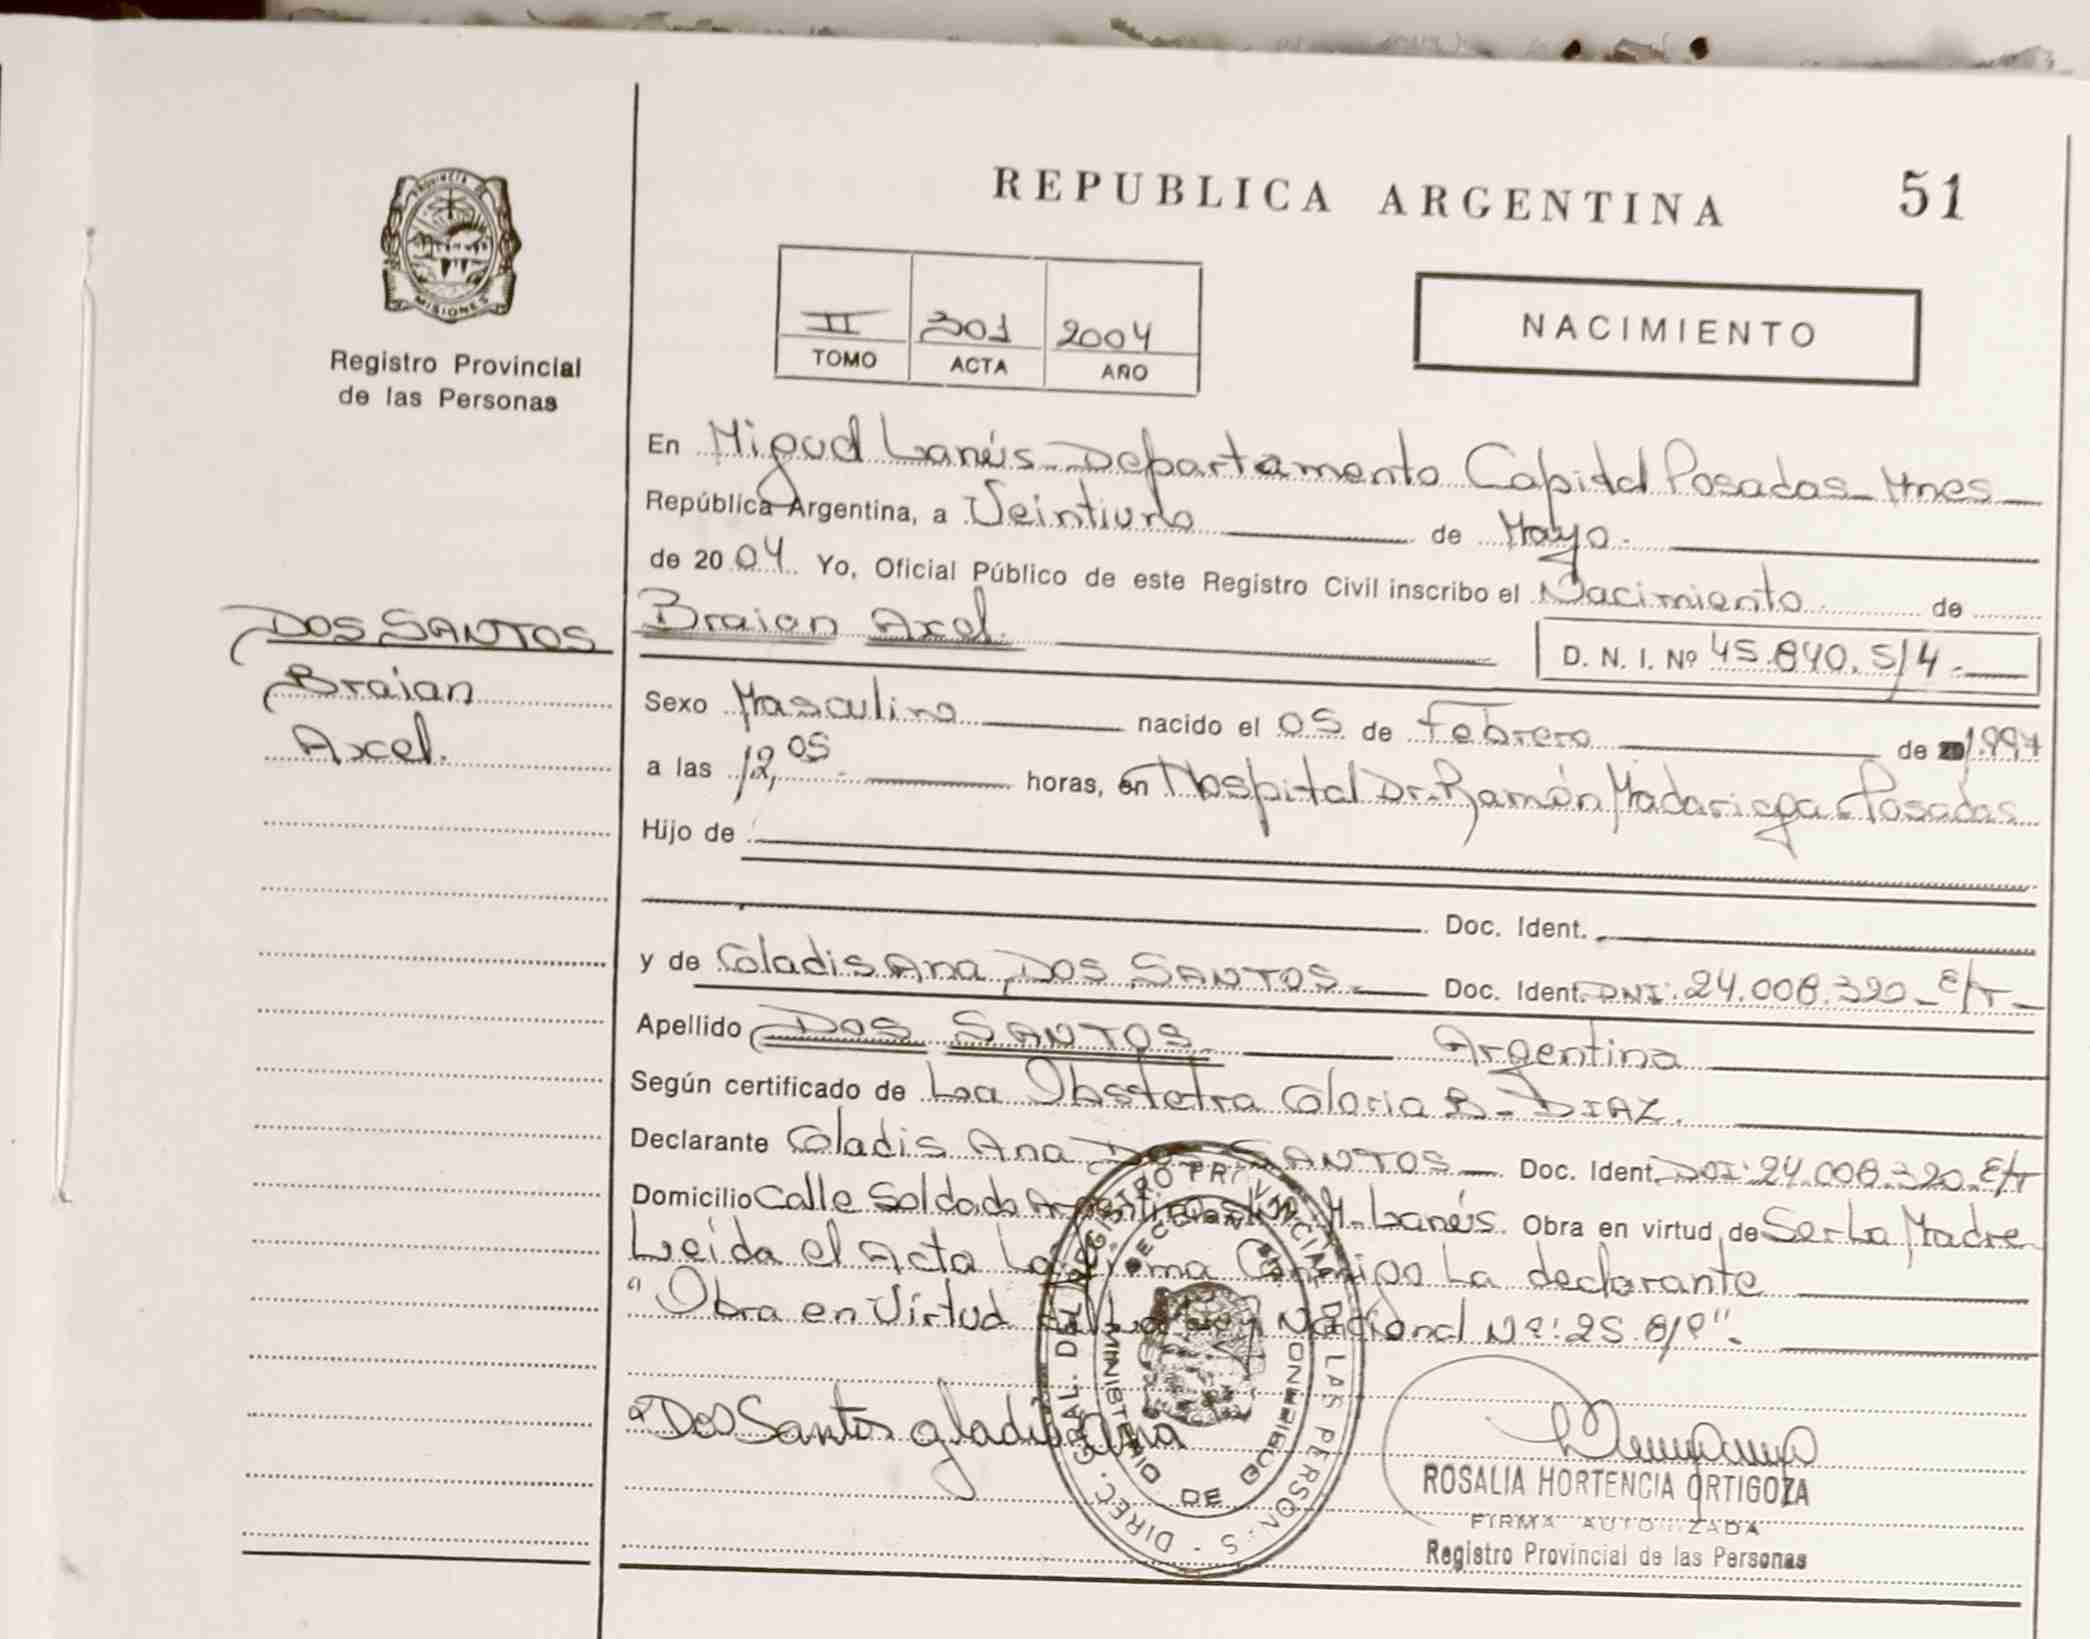 REPUBLICA ARGENTINA 51
PROVINCIA DE MISIONES
Registro Provincial
de las Personas
II 301 2004
TOMO ACTA AÑO
NACIMIENTO
En Miguel Lanús Departamento Capital Posadas Mnes
República Argentina, a Veintiuno de Mayo
de 2004 Yo, Oficial Público de este Registro Civil inscribo el Nacimiento de
DOS SANTOS
Braian
Axel.
Braian Axel.
D. N. I. Nº 45.840.514
Sexo Masculino nacido el 05 de Febrero de 1997
a las 12,05 horas, en Hospital Dr. Ramón Madariaga Posadas
Hijo de
Doc. Ident.
y de Gladis Ana DOS SANTOS Doc. Ident. DNI: 24.008.320
Apellido DOS SANTOS Argentina
Según certificado de La Obstetra Gloria B. DIAZ.
Declarante Gladis Ana DOS SANTOS Doc. Ident. 24.008.320
Domicilio Calle Soldado M. Lanús. Obra en virtud de Ser La Madre
Leída el Acta La firma Conmigo La declarante
"Obra en Virtud Nacional Nº: 25.819".
Dos Santos gladis Ana
DIREC. GRAL. DEL REGISTRO PROVINCIAL DE LAS PERSONAS
MINISTERIO DE
ROSALIA HORTENCIA ORTIGOZA
FIRMA AUTORIZADA
Registro Provincial de las Personas